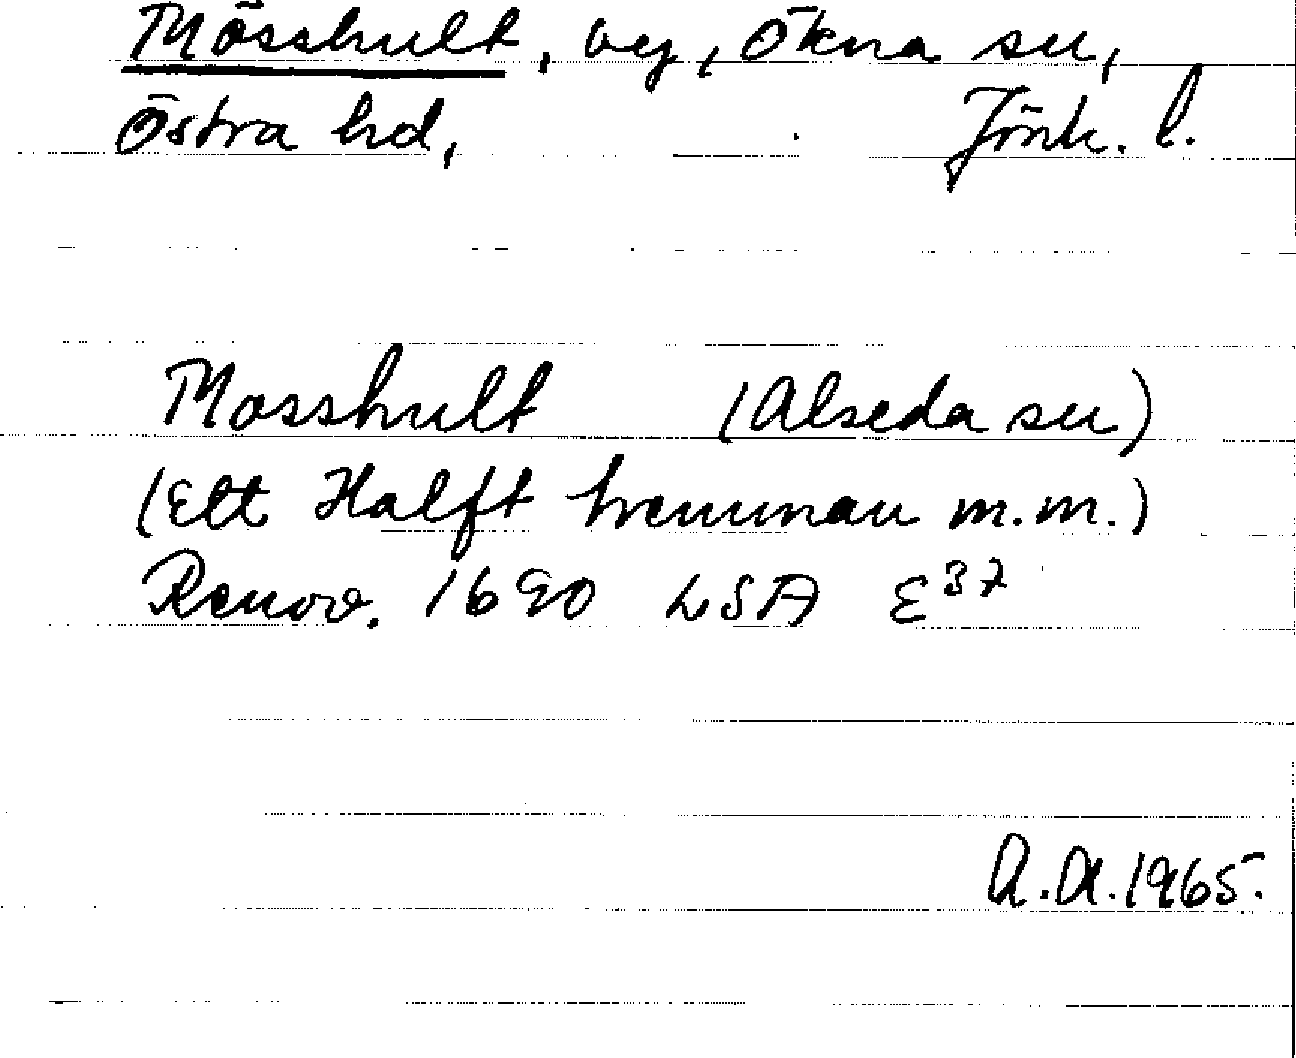 Mösshult, by, Ökna sn,
Östra hd, Jönk. l.
Mosshult (Alseda sn)
(Ett Halft hemman m.m.)
Renov. 1690 LSA E³⁷
A.A. 1965.